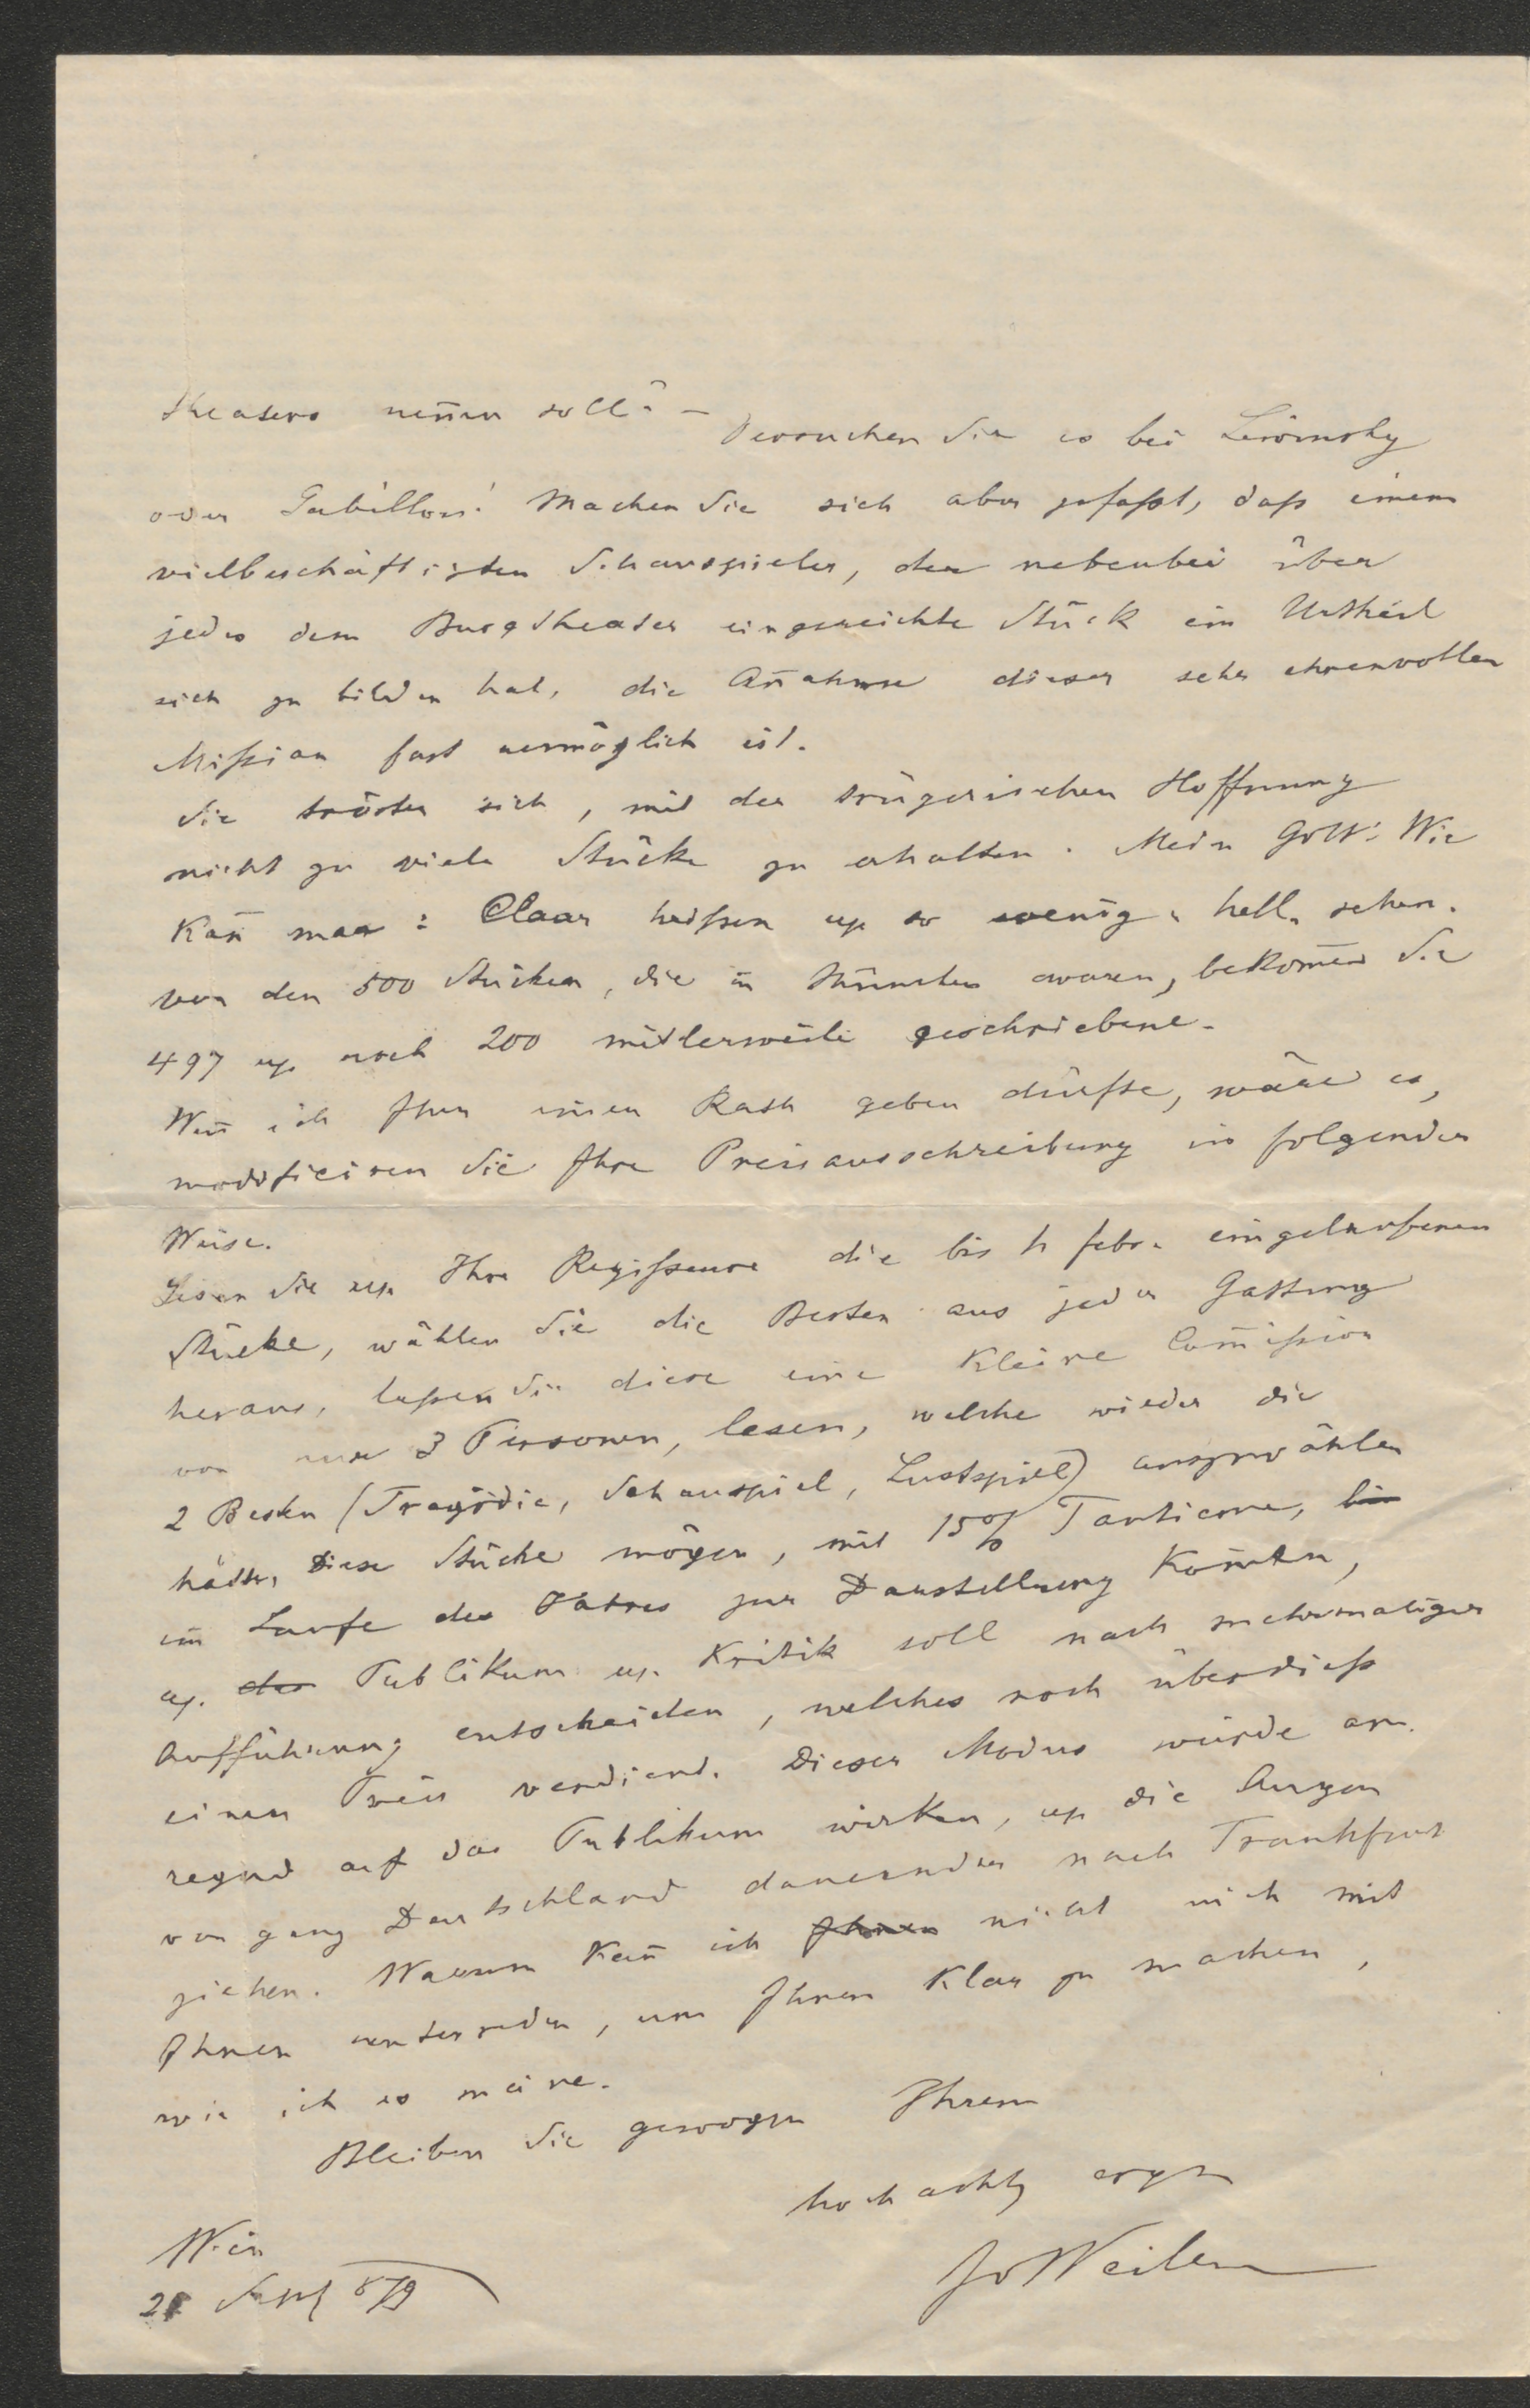 theaters nen̄en soll? –
Versuchen Sie es bei Lewinsky
oder Gabillon! Machen Sie sich aber gefaßt, daß einem
vielbeschäftigten Schauspieler, der nebenbei über
jedes dem Burgtheater eingereichte Stück ein Urtheil
sich zu bilden hat, die An̄ahme dieser sehr ehrenvollen
Mißion fast unmöglich ist.
Sie trösten sich, mit der trügerischen Hoffnung
nicht zu viele Stücke zu erhalten. Mein Gott! Wie
kan̄ man: Claar heißen u. so wenig „hell„ sehen.
von den 500 Stücken, die in München waren, bekom̄en Sie
497 u. noch 200 mitlerweile geschriebene.
Wen̄ ich Ihnen einen Rath geben dürfte, wäre es,
modificiren Sie Ihre Preisausschreibung in folgender
Weise.
Lesen Sie u. Ihre Regißeure die bis Febr. eingelaufenen
Stücke, wählen Sie die Besten aus jeder Gattung
heraus, laßen Sie diese eine kleine Com̄ißion
von nur 3 Personen, lesen, welche wieder die
2 Besten (Tragödie, Schauspiel, Lustspiel) auszuwählen
hätte, Diese Stücke mögen, mit 15% Tantieme, bis
im Laufe des Jahres zur Darstellung kom̄en,
u. das Publikum u. Kritik soll nach mehrmaliger
Aufführung entscheiden, welches noch überdieß
einen Preis verdient. Dieser Modus würde an
regend auf das Publikum wirken, u. die Augen
von ganz Deutschland dauernder nach Frankfurt
ziehen. Warum kan̄ ich Ihnen nicht mich mit
Ihnen unterreden, um Ihnen klar zu machen,
wie ich es meine.
Bleiben Sie gewogen Ihrem
hochachtg ergn
Jo Weilen
Wien
21 Sept 879